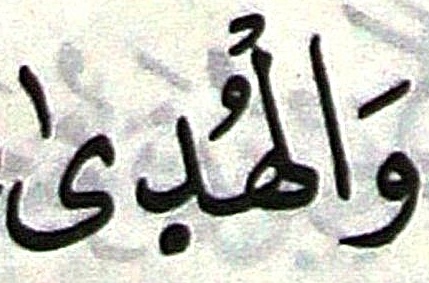 وَالْهُد۪ىٰ